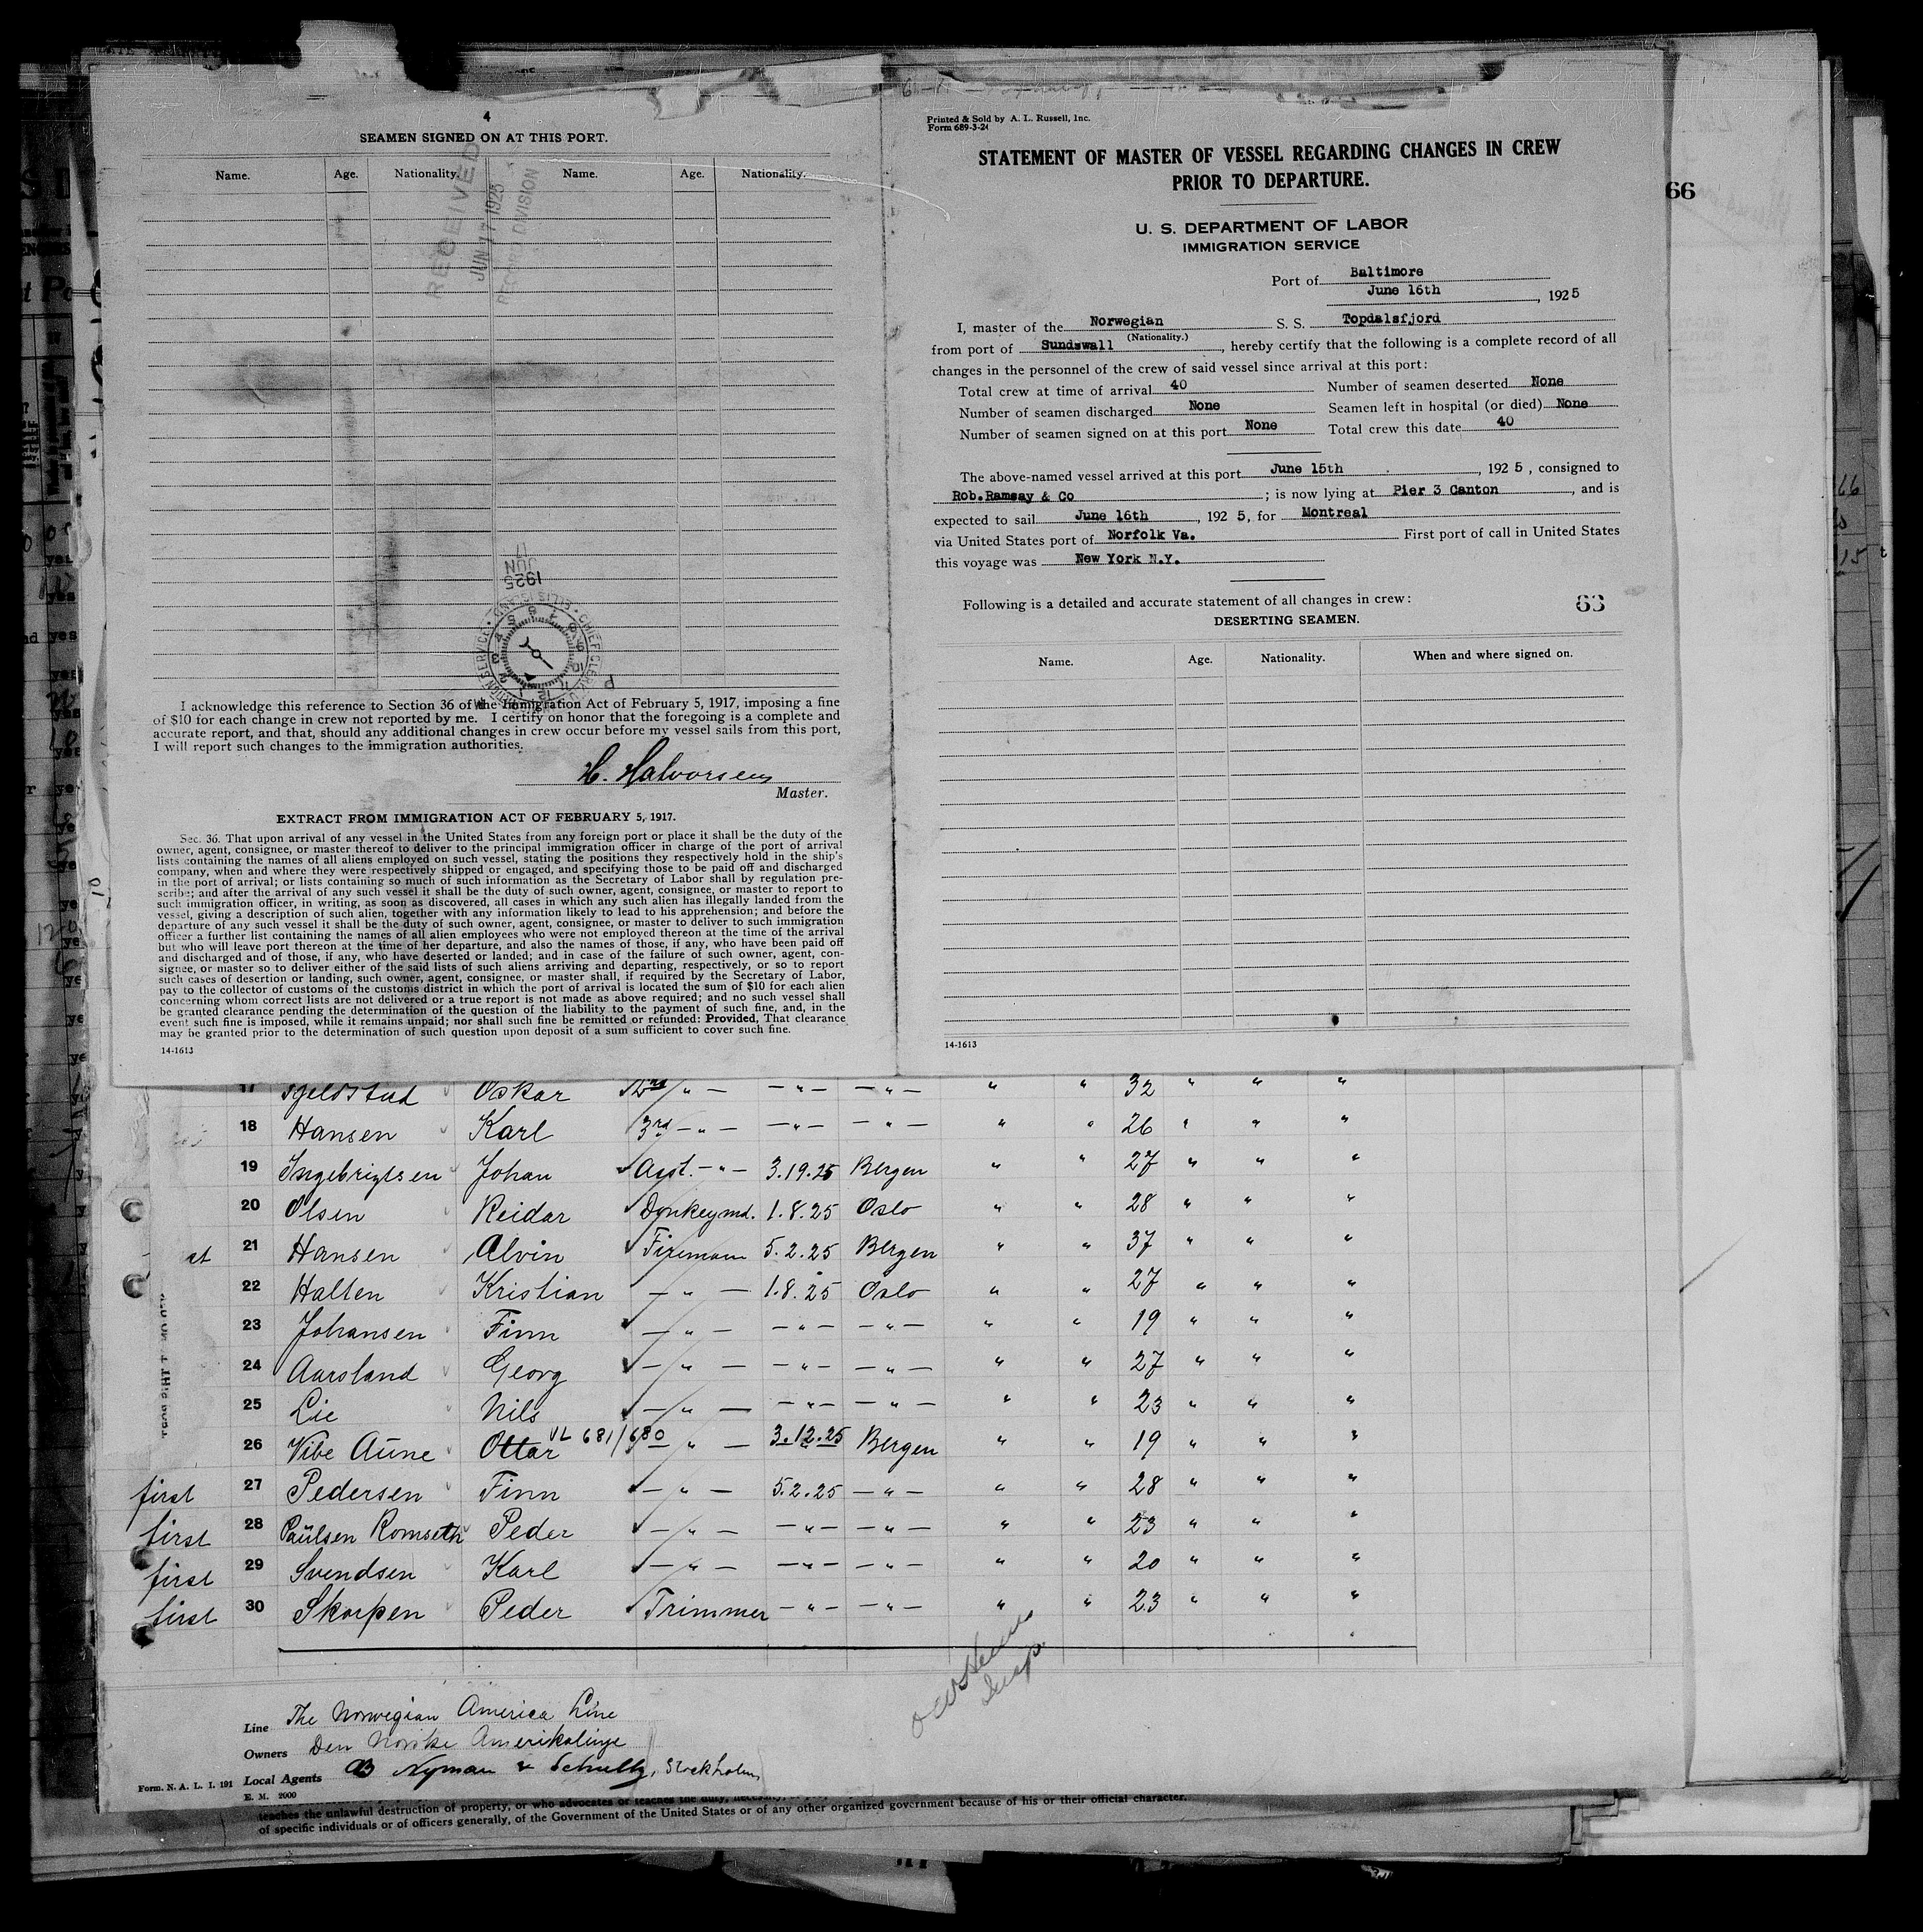 4
SEAMEN SIGNED ON AT THIS PORT.
Name. Age. Nationality. Name. Age. Nationality.
RECEIVED
JUN 17 1925
RECORD DIVISION
1925
JUN
17
I acknowledge this reference to Section 36 of the Immigration Act of February 5, 1917, imposing a fine
of $10 for each change in crew not reported by me. I certify on honor that the foregoing is a complete and
accurate report, and that, should any additional changes in crew occur before my vessel sails from this port,
I will report such changes to the immigration authorities.
H. Halvorsen
Master.
EXTRACT FROM IMMIGRATION ACT OF FEBRUARY 5, 1917.
Sec. 36. That upon arrival of any vessel in the United States from any foreign port or place it shall be the duty of the
owner, agent, consignee, or master thereof to deliver to the principal immigration officer in charge of the port of arrival
lists containing the names of all aliens employed on such vessel, stating the positions they respectively hold in the ship's
company, when and where they were respectively shipped or engaged, and specifying those to be paid off and discharged
in the port of arrival; or lists containing so much of such information as the Secretary of Labor shall by regulation pre-
scribe; and after the arrival of any such vessel it shall be the duty of such owner, agent, consignee, or master to report to
such immigration officer, in writing, as soon as discovered, all cases in which any such alien has illegally landed from the
vessel, giving a description of such alien, together with any information likely to lead to his apprehension; and before the
departure of any such vessel it shall be the duty of such owner, agent, consignee, or master to deliver to such immigration
officer a further list containing the names of all alien employees who were not employed thereon at the time of the arrival
but who will leave port thereon at the time of her departure, and also the names of those, if any, who have been paid off
and discharged and of those, if any, who have deserted or landed; and in case of the failure of such owner, agent, con-
signee, or master so to deliver either of the said lists of such aliens arriving and departing, respectively, or so to report
such cases of desertion or landing, such owner, agent, consignee, or master shall, if required by the Secretary of Labor,
pay to the collector of customs of the customs district in which the port of arrival is located the sum of $10 for each alien
concerning whom correct lists are not delivered or a true report is not made as above required; and no such vessel shall
be granted clearance pending the determination of the question of the liability to the payment of such fine, and, in the
event such fine is imposed, while it remains unpaid; nor shall such fine be remitted or refunded: Provided, That clearance
may be granted prior to the determination of such question upon deposit of a sum sufficient to cover such fine.
14-1613
Printed & Sold by A. L. Russell, Inc.
Form 689-3-24
STATEMENT OF MASTER OF VESSEL REGARDING CHANGES IN CREW
PRIOR TO DEPARTURE.
U. S. DEPARTMENT OF LABOR
IMMIGRATION SERVICE
Port of Baltimore
June 16th, 1925
I, master of the Norwegian S. S. Topdalsfjord
(Nationality.)
from port of Sundswall, hereby certify that the following is a complete record of all
changes in the personnel of the crew of said vessel since arrival at this port:
Total crew at time of arrival 40 Number of seamen deserted None
Number of seamen discharged None Seamen left in hospital (or died) None
Number of seamen signed on at this port None Total crew this date 40
The above-named vessel arrived at this port June 15th, 192 5, consigned to
Rob.Ramsay & Co; is now lying at Pier 3 Canton, and is
expected to sail June 16th, 192 5, for Montreal
via United States port of Norfolk Va. First port of call in United States
this voyage was New York N.Y.
Following is a detailed and accurate statement of all changes in crew:
63
DESERTING SEAMEN.
Name. Age. Nationality. When and where signed on.
14-1613
66
Oskar 2nd -"- -"- -"- " " 32 " " "
18 Hansen Karl 3rd -"- -"- -"- " " 26 " " "
19 Ingebrigtsen Johan Asst. -"- 3.19.25 Bergen " " 27 " " "
20 Olsen Reidar Donkeymd. 1.8.25 Oslo " " 28 " " "
21 Hansen Alvin Fireman 5.2.25 Bergen " " 37 " " "
22 Halten Kristian -"- 1.8.25 Oslo " " 27 " " "
23 Johansen Finn -"- -"- -"- " " 19 " " "
24 Aarsland Georg -"- -"- -"- " " 27 " " "
25 Lie Nils -"- -"- -"- " " 23 " " "
26 Vibe Aune Ottar VL 681/680 -"- 3.12.25 Bergen " " 19 " " "
first 27 Pedersen Finn -"- 5.2.25 -"- " " 28 " " "
first 28 Paulsen Romseth Peder -"- -"- -"- " " 23 " " "
first 29 Svendsen Karl -"- -"- -"- " " 20 " " "
first 30 Skorpen Peder Trimmer -"- -"- " " 23 " " "
Insp.
Line The Norwegian America Line
Owners Den Norske Amerikalinje
Form. N. A. L. I. 191 Local Agents AB Nyman & Schultz, Stockholm
E. M. 2000
teaches the unlawful destruction of property, or who advocates or teaches the duty,
of specific individuals or of officers generally, of the Government of the United States or of any other organized government because of his or their official character.